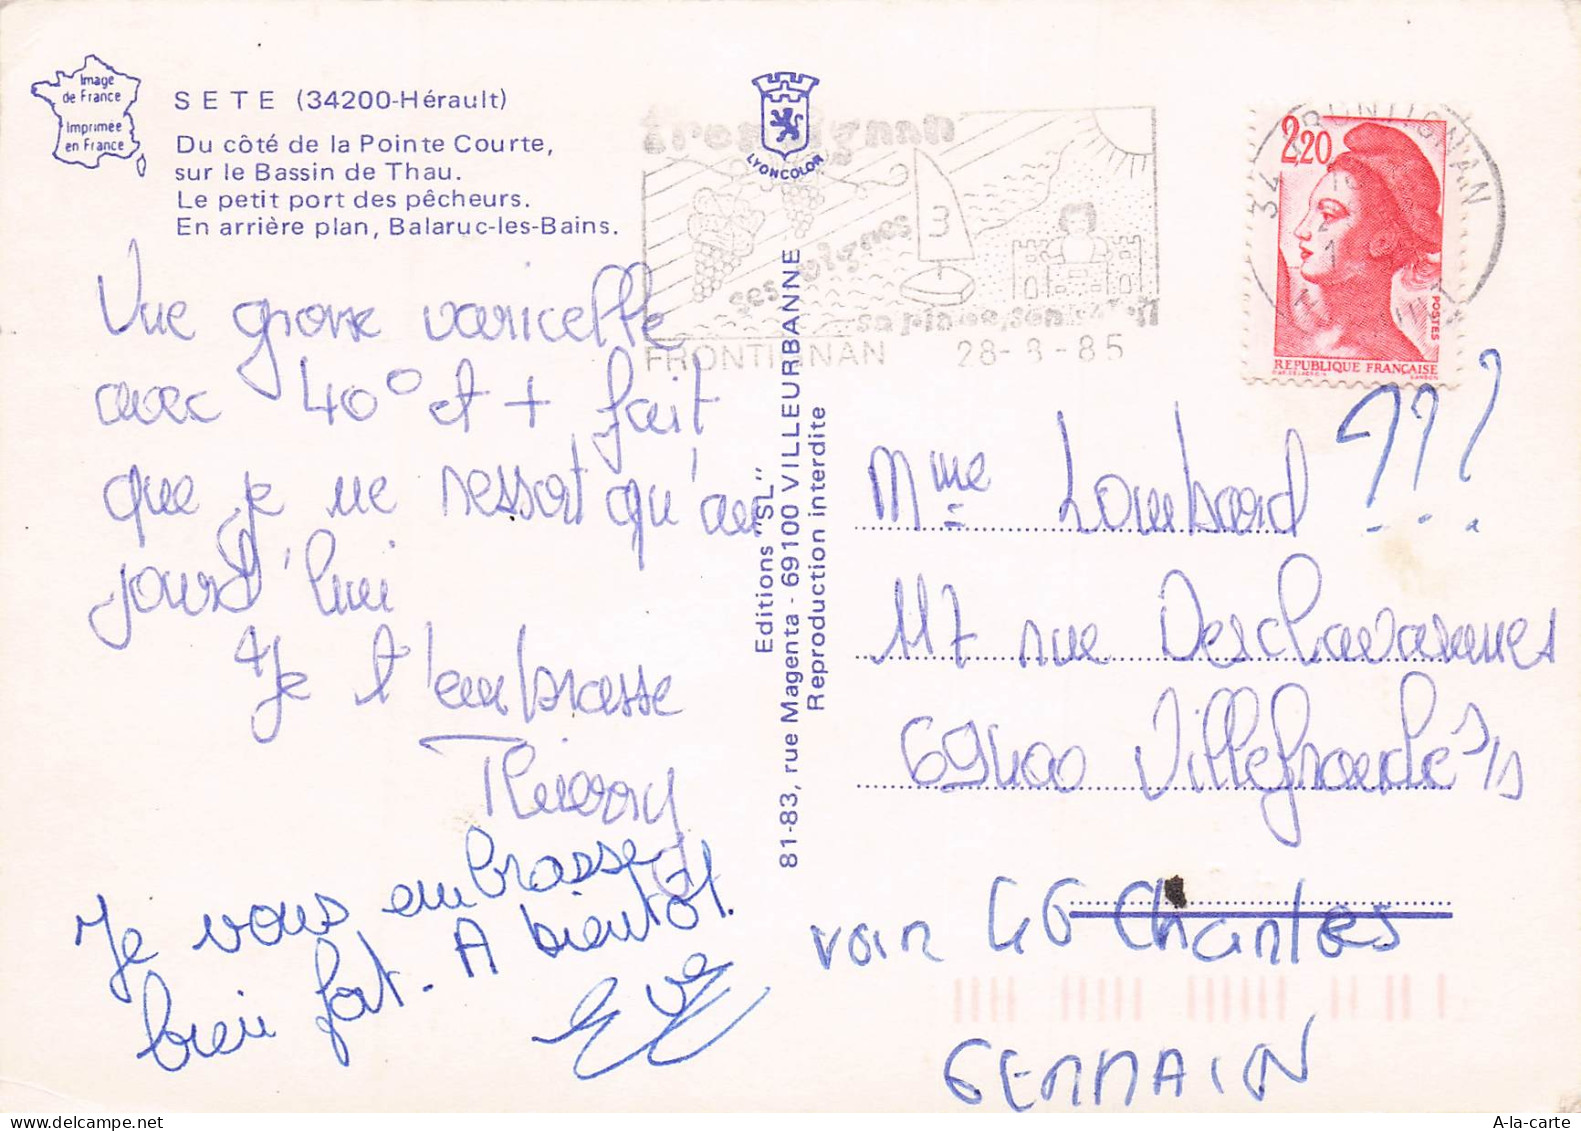 Image
de France
Imprimée
en France
SETE (34200-Hérault)
Du côté de la Pointe Courte,
sur le Bassin de Thau.
Le petit port des pêcheurs.
En arrière plan, Balaruc-les-Bains.
Vue grosse varicelle
avec 40° et + fait
que je ne ressort qu'au
jourd'hui
Je t'embrasse
Thierry
Je vous embrasse
bien fort. A bientôt.
Eve
LYONCOLOR
frontignan
ses vignes
3
sa plage, son
FRONTIGNAN 28-8-85
Editions "SL"
81-83, rue Magenta - 69100 VILLEURBANNE
Reproduction interdite
34 FRONTIGNAN
2,20
POSTES
REPUBLIQUE FRANÇAISE
Mme Lombard ???
117 rue Deschavannes
69400 Villefranche s/s
voir 46 Chantes
GERMAIN
A-la-carte